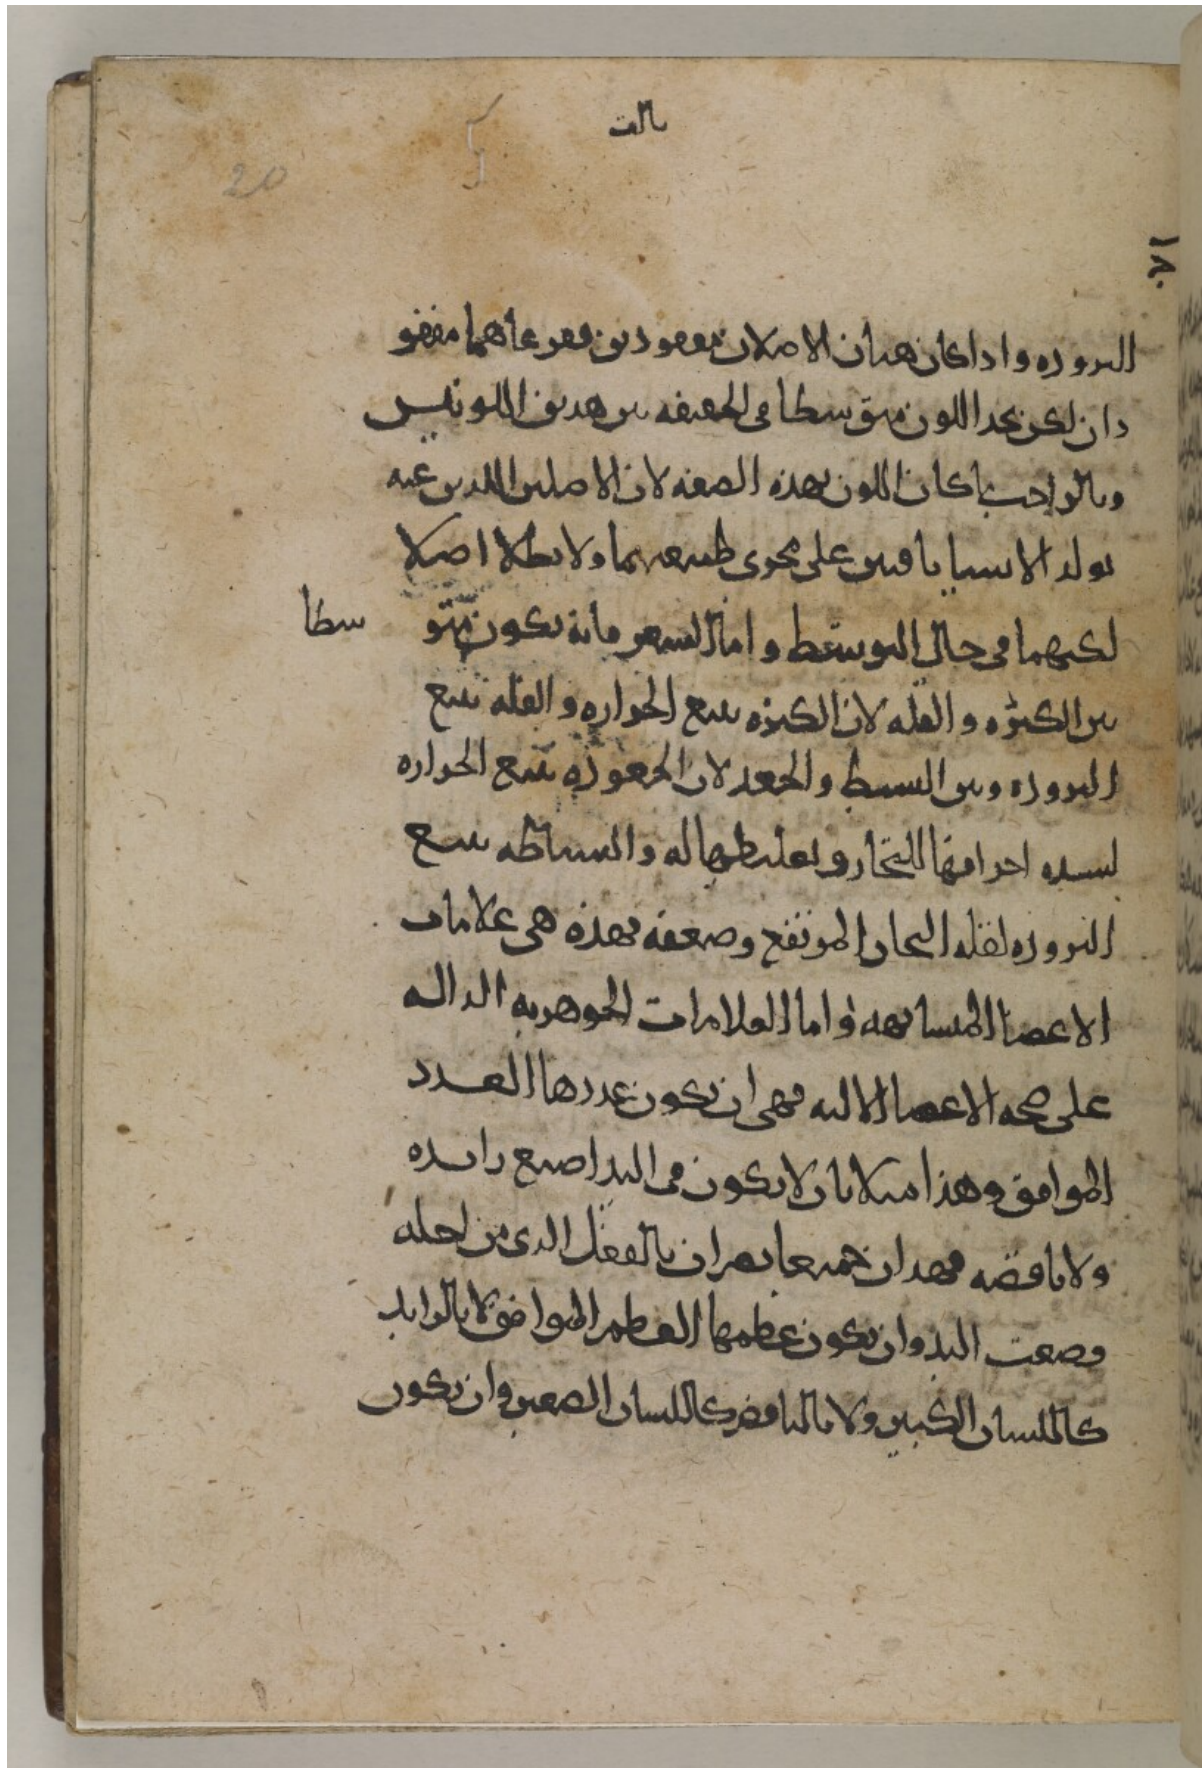 ثالث
20
البرودة واذا كان هذان الاصلان مفقودين ففرعاهما مفقو
دان لكن نجد اللون متوسطا في الحقيقة بين هذين اللونين
وبالواجب ما كان اللون بهذه الصفة لان الاصلين اللذين عنه
تولد الاشيا باقيين على محوى طبيعتهما ولا بطلا اصلا
لكنهما في حال التوسط واما الشعر فانه يكون متو سطا
بين الكثرة والقلة لان الكثرة تتبع الحرارة والقلة تتبع
البرودة وبين السبط والجعد لان الجعودة تتبع الحرارة
لشدة احراقها للبخار وتغليظها له والسباطة تتبع
البرودة لقلة البخار المرتفع وضعفه فهذه هي علامات
الاعضا المتشابهة واما العلامات الجوهرية الدالة
على صحة الاعضا الالية فهي ان يكون عددها العدد
الموافق وهذا مثلا بان لا يكون في اليد اصبع زايدة
ولا ناقصة فهذان جميعا يضران بالفعل الذي من اجله
وضعت اليد وان يكون عظمها العظم الموافق لا بالزايد
كاللسان الكبير ولا بالناقص كاللسان الصغير وان يكون